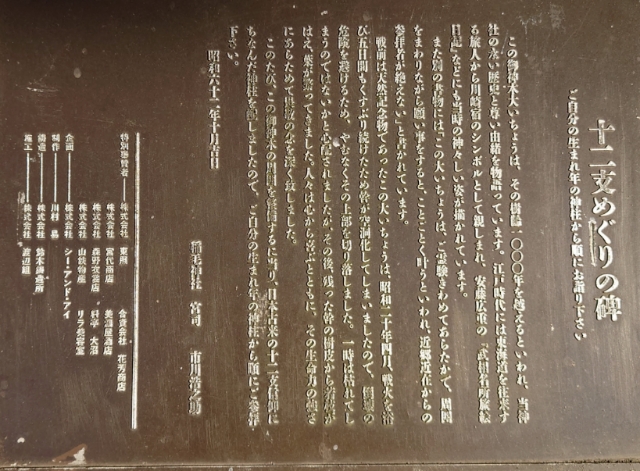 十二支めぐりの碑
ご自分の生まれ年の神柱から順にお詣り下さい
この御神木大いちょうは、その樹齢一〇〇〇年を越えるといわれ、当神
社の永い歴史と尊い由緒を物語っています。江戸時代には東海道を往来す
る旅人から川崎宿のシンボルとして親しまれ、安藤広重の「武相名所旅絵
日記」などにも当時の神々しい姿が描かれています。
また別の書物には「この大いちょうは、ご霊験きわめてあらたかで、周囲
をまわりながら願い事をすると、ことごとく叶うといわれ、近郷近在からの
参拝者が絶えない」と書かれています。
戦前は天然記念物であったこの大いちょうは、昭和二十年四月、戦火を浴
び五日間もくすぶり続けたため幹が空洞化してしまいましたので、
危険を避けるため、やむなくその上部を切り落しました。一時は枯れてし
まうのではないかと心配されましたが、その後、残った幹の樹皮から若芽が
はえ、葉が繁ってきました。人々は心から喜ぶとともに、その生命力の強さ
にあらためて畏敬の念を深く致しました。
このたび、この御神木の周囲を整備するに当り、日本古来の十二支信仰に
ちなんだ神柱を配しましたので、ご自分の生まれ年の神柱から順にご参拝
下さい。
昭和六十一年十月吉日
稲毛神社 宮司 市川緋之助
特別協賛者 株式会社 東照 合資会社 花芳商店
株式会社 宮代商店 美淵屋酒店
株式会社 森野衣裳店 料亭 大沼
株式会社 山鉄物産 リラ美容室
企画 株式会社 シー・アンド・アイ
制作 川村 易
鋳造 株式会社 鈴木鋳造所
施工 株式会社 渡辺組